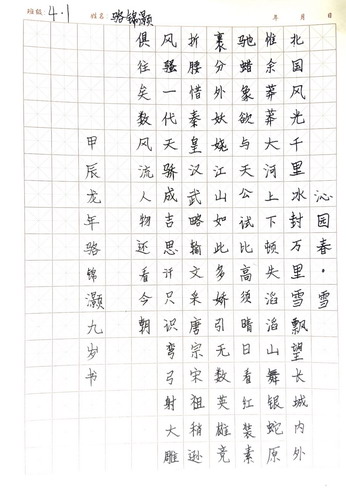 班级 4.1 姓名 骆锦灏 年 月 日
沁园春·雪
北国风光千里冰封万里雪飘望长城内外
惟余莽莽大河上下顿失滔滔山舞银蛇原
驰蜡象欲与天公试比高须晴日看红装素
裹分外妖娆江山如此多娇引无数英雄竞
折腰惜秦皇汉武略输文采唐宗宋祖稍逊
风骚一代天骄成吉思汗只识弯弓射大雕
俱往矣数风流人物还看今朝
甲辰龙年骆锦灏九岁书